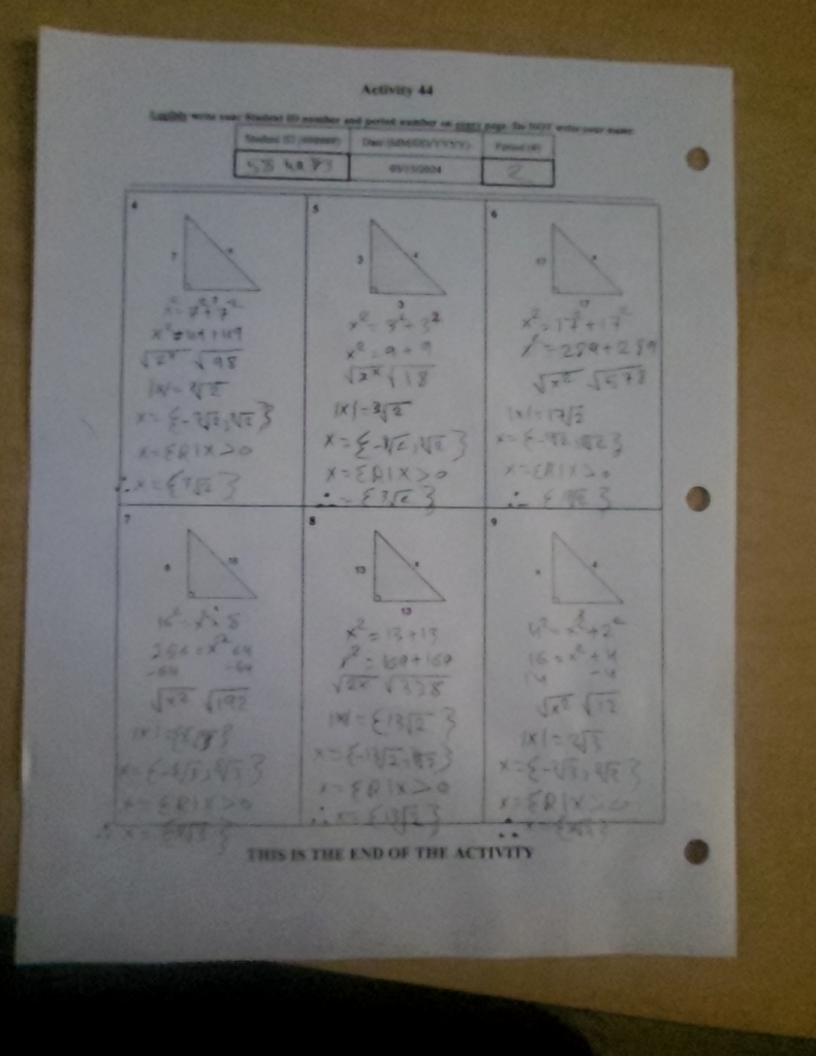 Activity 44
Legibly write your Student ID number and period number on every page. Do NOT write your name.
Student ID (######) Date (MM/DD/YYYY) Period (#)
03/15/2024 2
4
7 x
x² = 7² + 7²
x² = 49 + 49
√x² √98
|x| = 7√2
x = {-7√2, 7√2}
x = {R | x > 0
∴ x = {7√2}
5
3 x
3
x² = 3² + 3²
x² = 9 + 9
√x² √18
|x| = 3√2
x = {-3√2, 3√2}
x = {R | x > 0
∴ = {3√2}
6
17 x
17
x² = 17² + 17²
x² = 289 + 289
√x² √578
|x| = 17√2
x = {R | x > 0
7
8 16
256 = x² 64
-64 -64
√x² √192
x = {R | x > 0
8
13 x
13
x² = 13 + 13
x² = 169 + 169
√2x √338
|x| = {13√2}
x = {R | x > 0
∴ x = {13√2}
9
x 4
4² = x² + 2²
16 = x² + 4
-4
√x² √12
|x| = 2√3
x = {R | x > 0
THIS IS THE END OF THE ACTIVITY